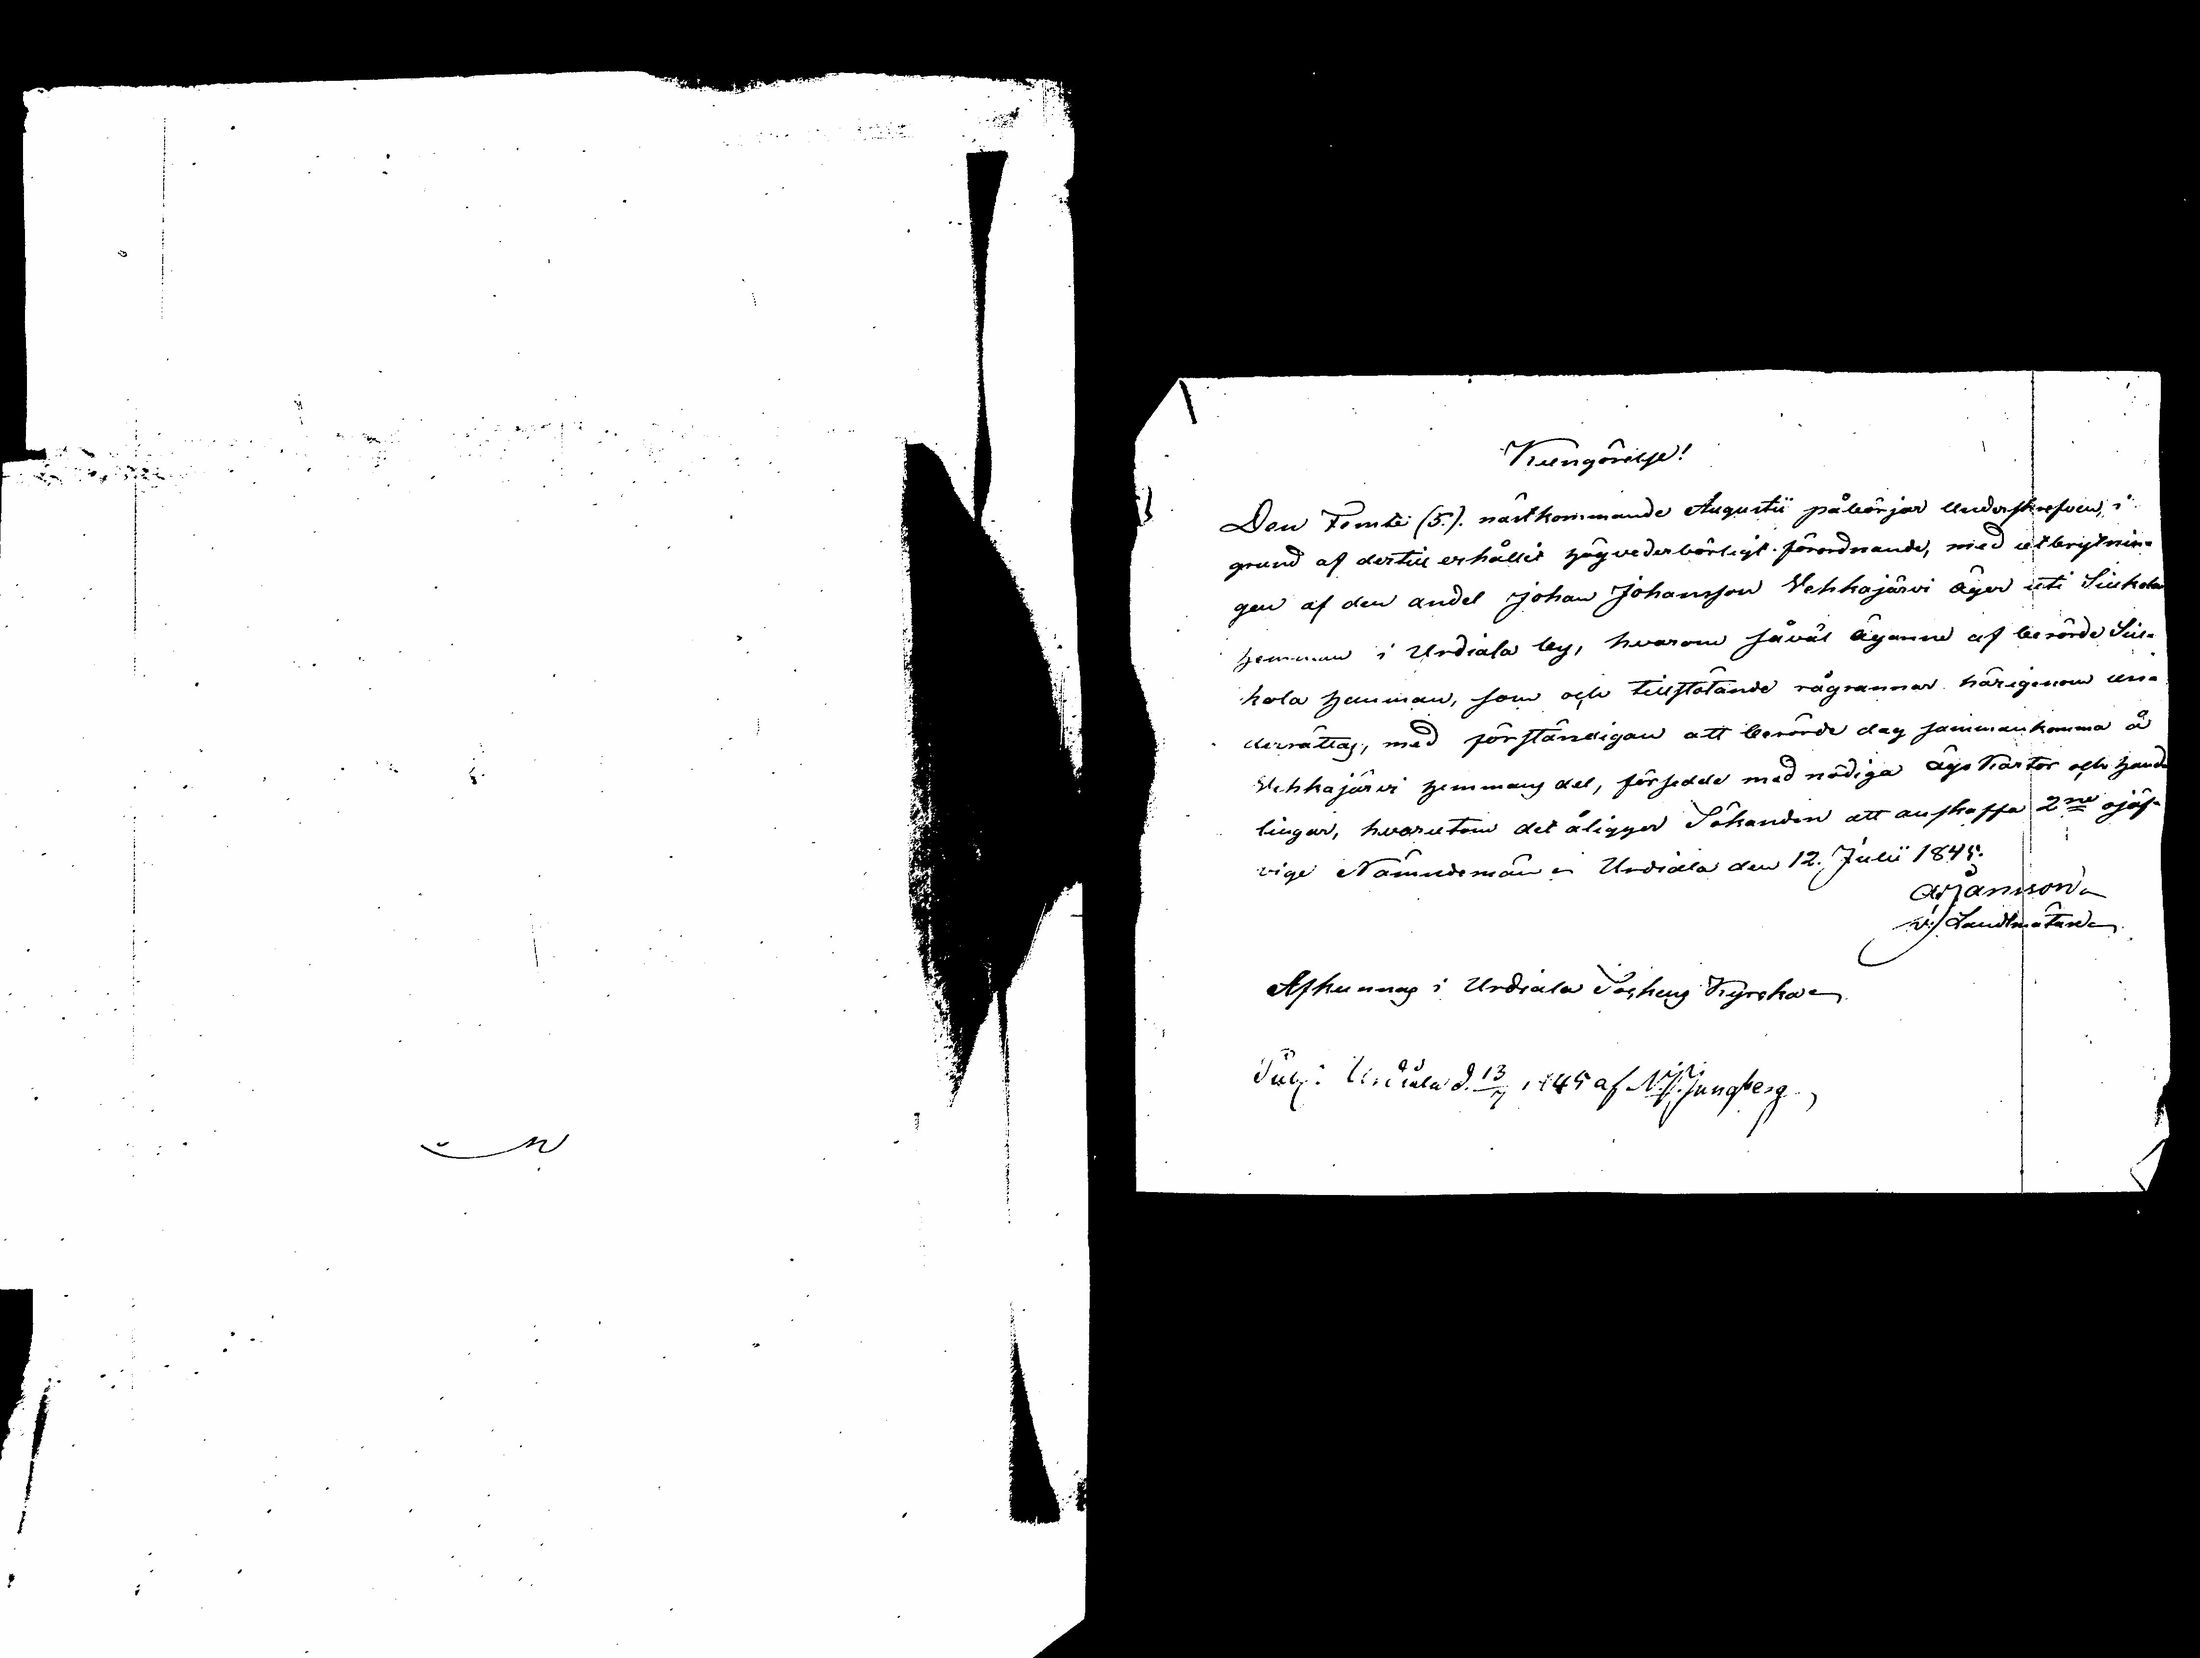 Kungörelse!
Den Femte (5.) nästkommande Augustii påbörjar Underskrefven, i
grund af dertill erhållit högvederbörligt förordnande, med utbrytnin-
gen af den andel Johan Johansson Vehkajärvi äger uti Siukola
Hemman i Urdiala by, hvarom såväl ägarne af berörde Siu-
kola Hemman, som och tillstötande rågrannar härigenom un-
derrättas, med förständigan att berörde dag sammankomma å
Vehkajärvi Hemmans del, försedde med nödiga ägo Kartor och Hand-
lingar, hvarutom det åligger Sökanden att anskaffa 2ne ojäf-
vige Nämndemän. Urdiala den 12. Julii 1845.
Jansson
v. Landtmätare
Afkunnas i Urdiala Sockens Kyrka
Publ: Urdiala d. 13/7 1845 af Ljungberg